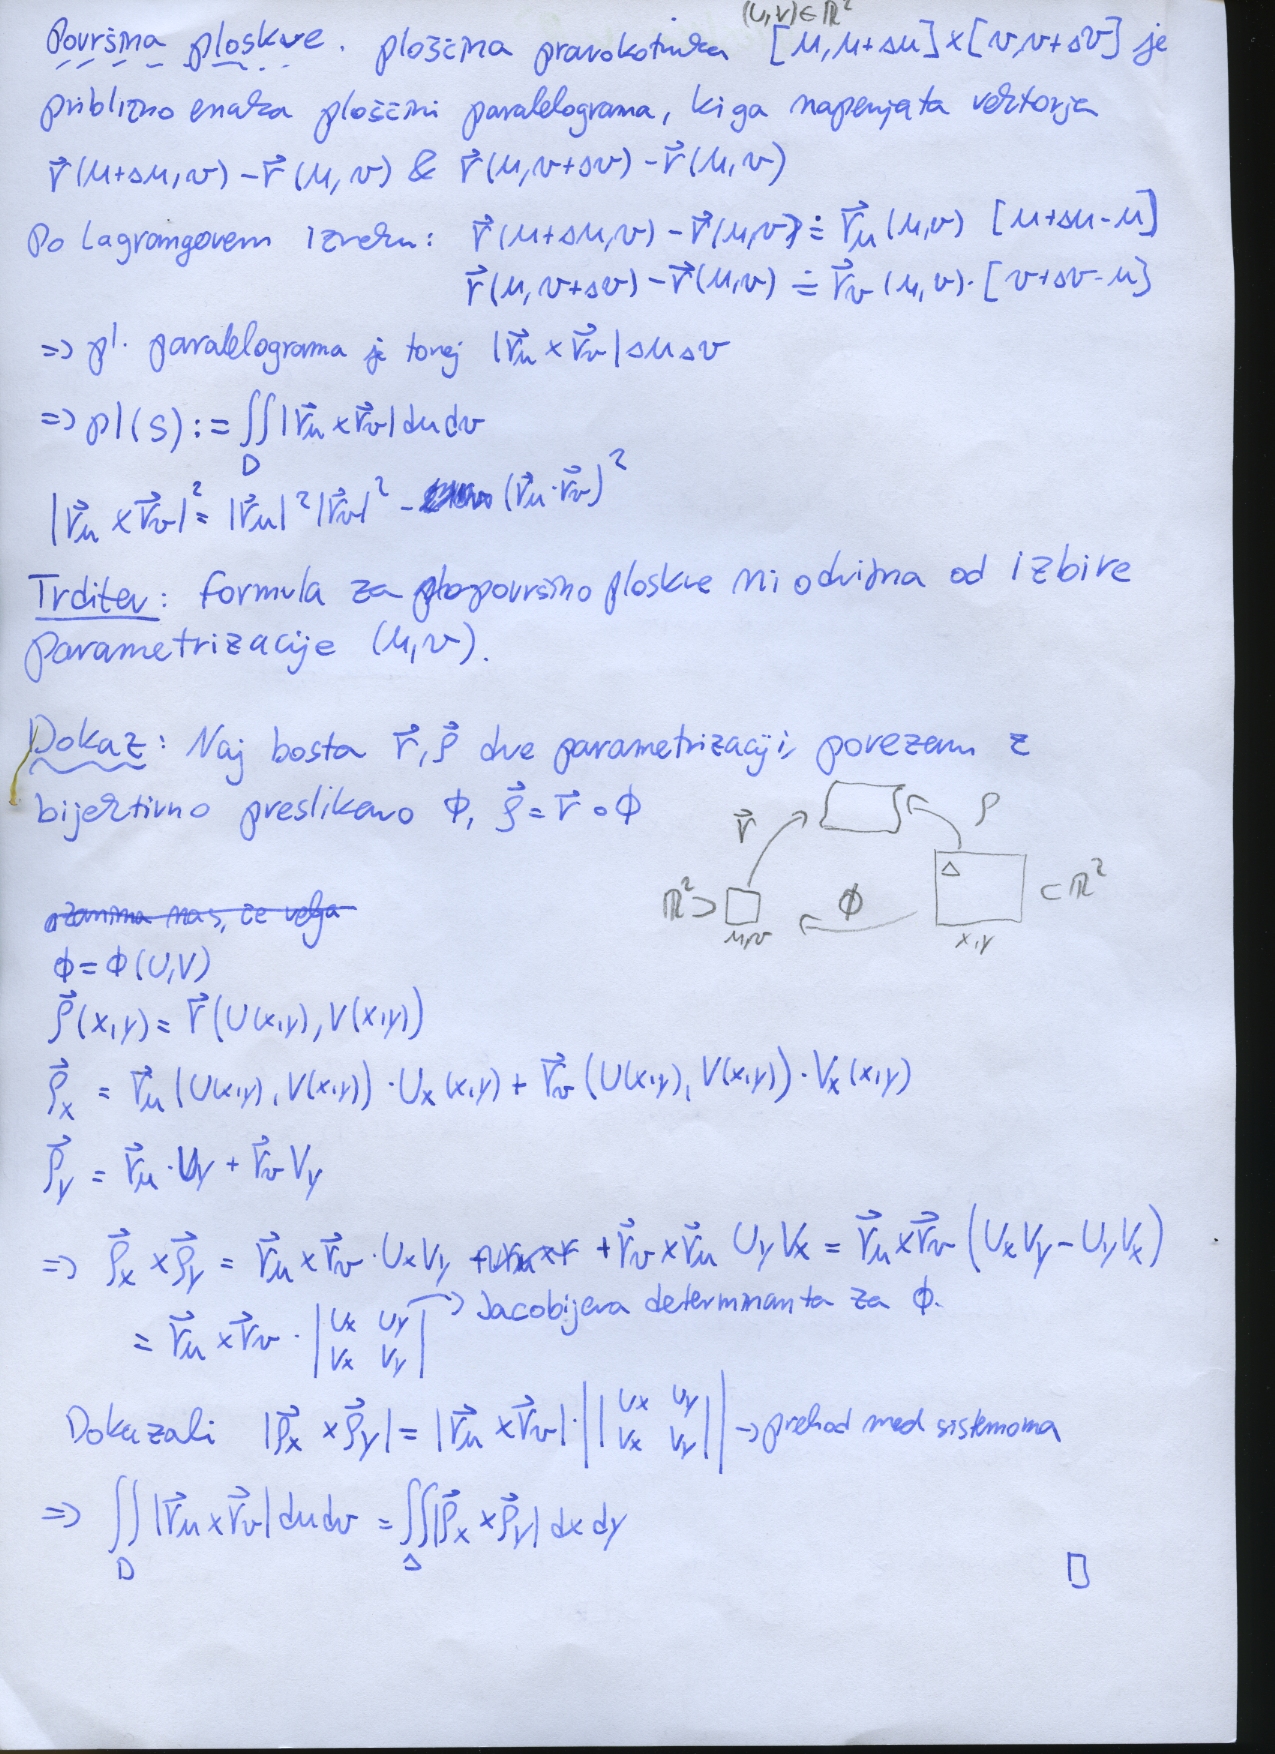 (U,V)∈ℝ²
Površina ploskve. ploščina pravokotnika [u,u+Δu]×[v,v+Δv] je
približno enaka ploščini paralelograma, ki ga napenjata vektorja
r⃗(u+Δu,v) - r⃗(u,v) & r⃗(u,v+Δv) - r⃗(u,v)
Po Lagrangevem izreku: r⃗(u+Δu,v) - r⃗(u,v) ≐ r⃗ᵤ(u,v) [u+Δu-u]
r⃗(u,v+Δv) - r⃗(u,v) ≐ r⃗ᵥ(u,v)·[v+Δv-u]
=> pl. paralelograma je torej |r⃗ᵤ × r⃗ᵥ| Δu Δv
=> pl(S) := ∬_D |r⃗ᵤ × r⃗ᵥ| du dv
|r⃗ᵤ × r⃗ᵥ|² = |r⃗ᵤ|² |r⃗ᵥ|² - (r⃗ᵤ·r⃗ᵥ)²
Trditev: formula za površino ploskve ni odvisna od izbire
parametrizacije (u,v).
Dokaz: Naj bosta r⃗, ρ⃗ dve parametrizaciji, povezani z
bijektivno preslikavo ϕ, ρ⃗ = r⃗ ∘ ϕ
r⃗ ρ
ℝ² ⊃ ϕ Δ ⊂ ℝ²
u,v x,y
zanima nas, če velja
ϕ = ϕ(U,V)
ρ⃗(x,y) = r⃗(U(x,y), V(x,y))
ρ⃗ₓ = r⃗ᵤ(U(x,y), V(x,y))·Uₓ(x,y) + r⃗ᵥ(U(x,y), V(x,y))·Vₓ(x,y)
ρ⃗_y = r⃗ᵤ·U_y + r⃗ᵥ V_y
=> ρ⃗ₓ × ρ⃗_y = r⃗ᵤ × r⃗ᵥ·Uₓ V_y + r⃗ᵥ × r⃗ᵤ U_y Vₓ = r⃗ᵤ × r⃗ᵥ (Uₓ V_y - U_y Vₓ)
= r⃗ᵤ × r⃗ᵥ · |Uₓ U_y; Vₓ V_y| → Jacobijeva determinanta za ϕ.
Dokazali |ρ⃗ₓ × ρ⃗_y| = |r⃗ᵤ × r⃗ᵥ|·| |Uₓ U_y; Vₓ V_y| | → prehod med sistemoma
=> ∬_D |r⃗ᵤ × r⃗ᵥ| du dv = ∬_Δ |ρ⃗ₓ × ρ⃗_y| dx dy
□